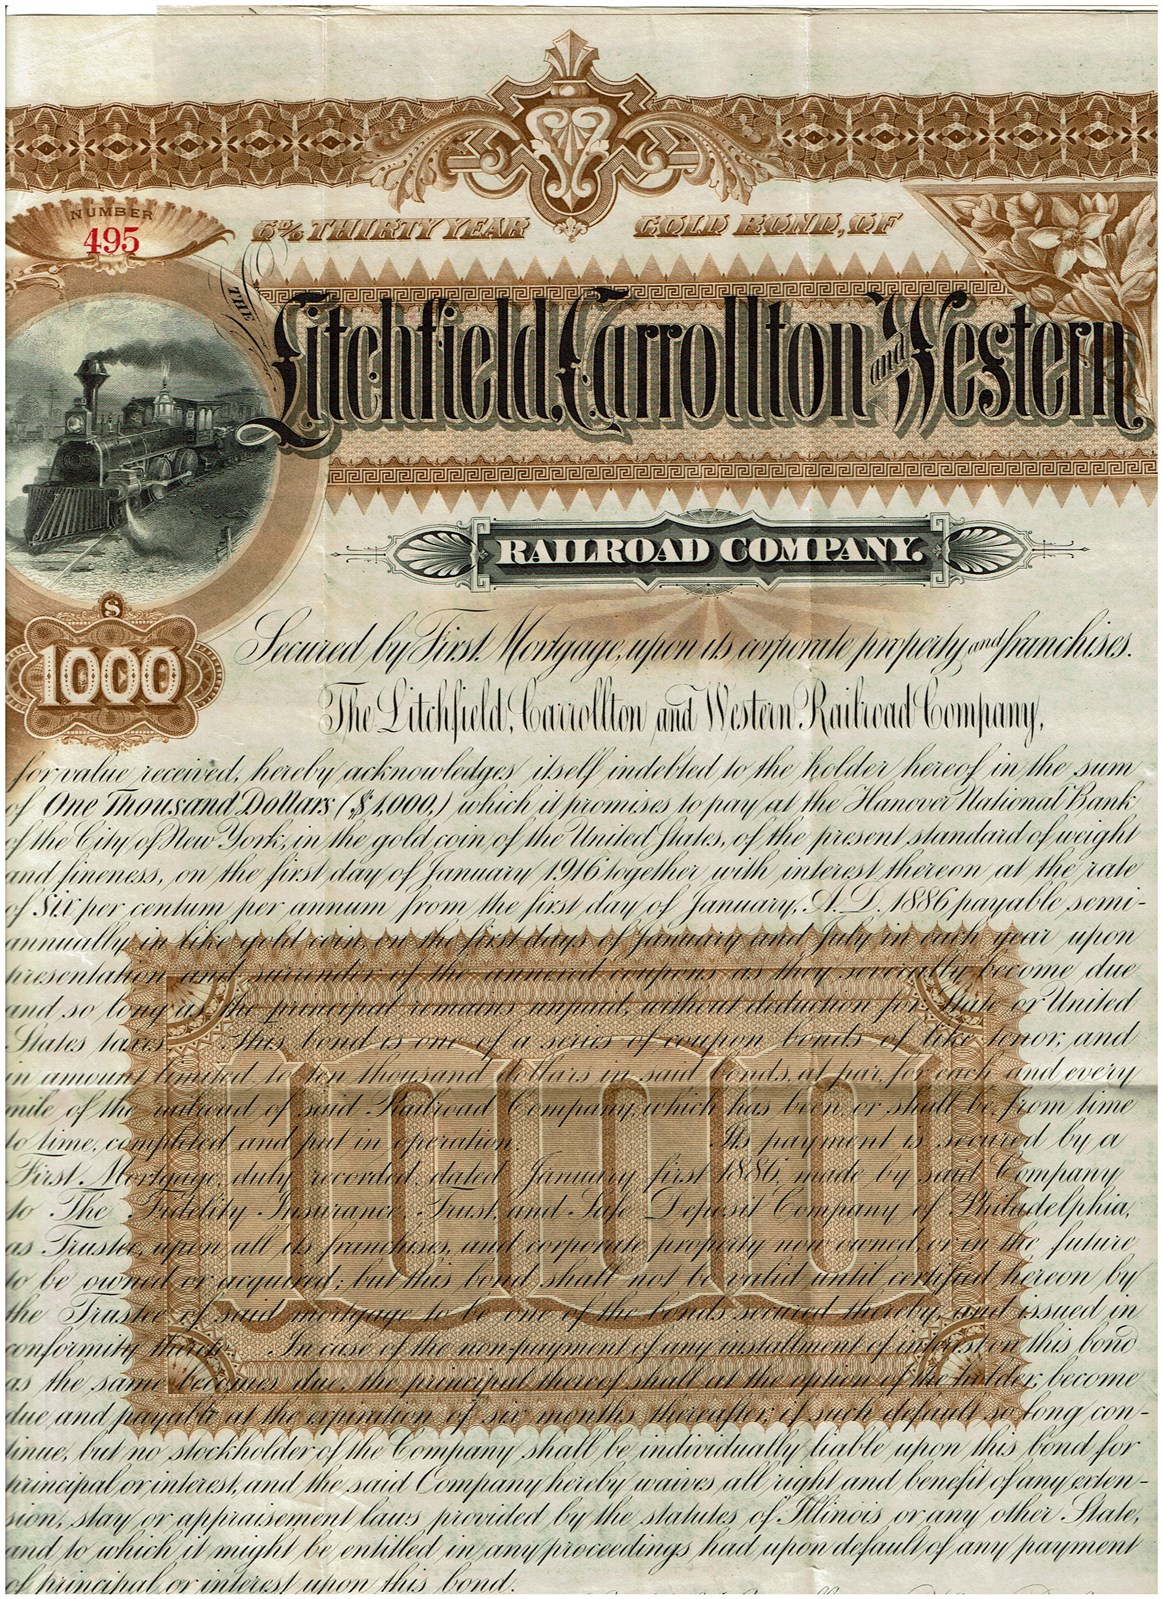 NUMBER
495
6% THIRTY YEAR GOLD BOND, OF
THE
Litchfield, Carrollton and Western
RAILROAD COMPANY.
$
1000
Secured by First Mortgage, upon its corporate property and franchises.
The Litchfield, Carrollton and Western Railroad Company,
for value received, hereby acknowledges itself indebted to the holder hereof in the sum
of One Thousand Dollars ($1,000,) which it promises to pay at the Hanover National Bank
of the City of New York, in the gold coin of the United States, of the present standard of weight
and fineness, on the first day of January 1916 together with interest thereon at the rate
of six per centum per annum from the first day of January, A.D. 1886 payable semi-
annually in like gold coin, on the first days of January and July in each year upon
presentation and surrender of the annexed coupons as they severally become due
and so long as the principal remains unpaid, without deduction for State or United
States taxes. This bond is one of a series of coupon bonds of like tenor, and
in amount limited, to ten thousand dollars in said bonds, at par, for each and every
mile of the railroad of said Railroad Company, which has been, or shall be, from time
to time, completed and put in operation. Its payment is secured by a
First Mortgage, duly recorded, dated January first 1886, made by said Company
to The Fidelity Insurance, Trust, and Safe Deposit Company of Philadelphia,
as Trustee, upon all its franchises, and corporate property now owned, or in the future
to be owned or acquired; but this bond shall not be valid until certified hereon by
the Trustee of said mortgage to be one of the bonds secured thereby, and issued in
conformity thereto. In case of the non-payment of any installment of interest on this bond
as the same becomes due, the principal thereof shall at the option of the holder, become
due, and payable at the expiration of six months thereafter, if such default so long con-
tinue, but no stockholder of the Company shall be individually liable upon this bond for
principal or interest, and the said Company hereby waives all right and benefit of any exten-
sion, stay or appraisement laws provided by the statutes of Illinois or any other State,
and to which it might be entitled in any proceedings had upon default of any payment
of principal or interest upon this bond.
1000